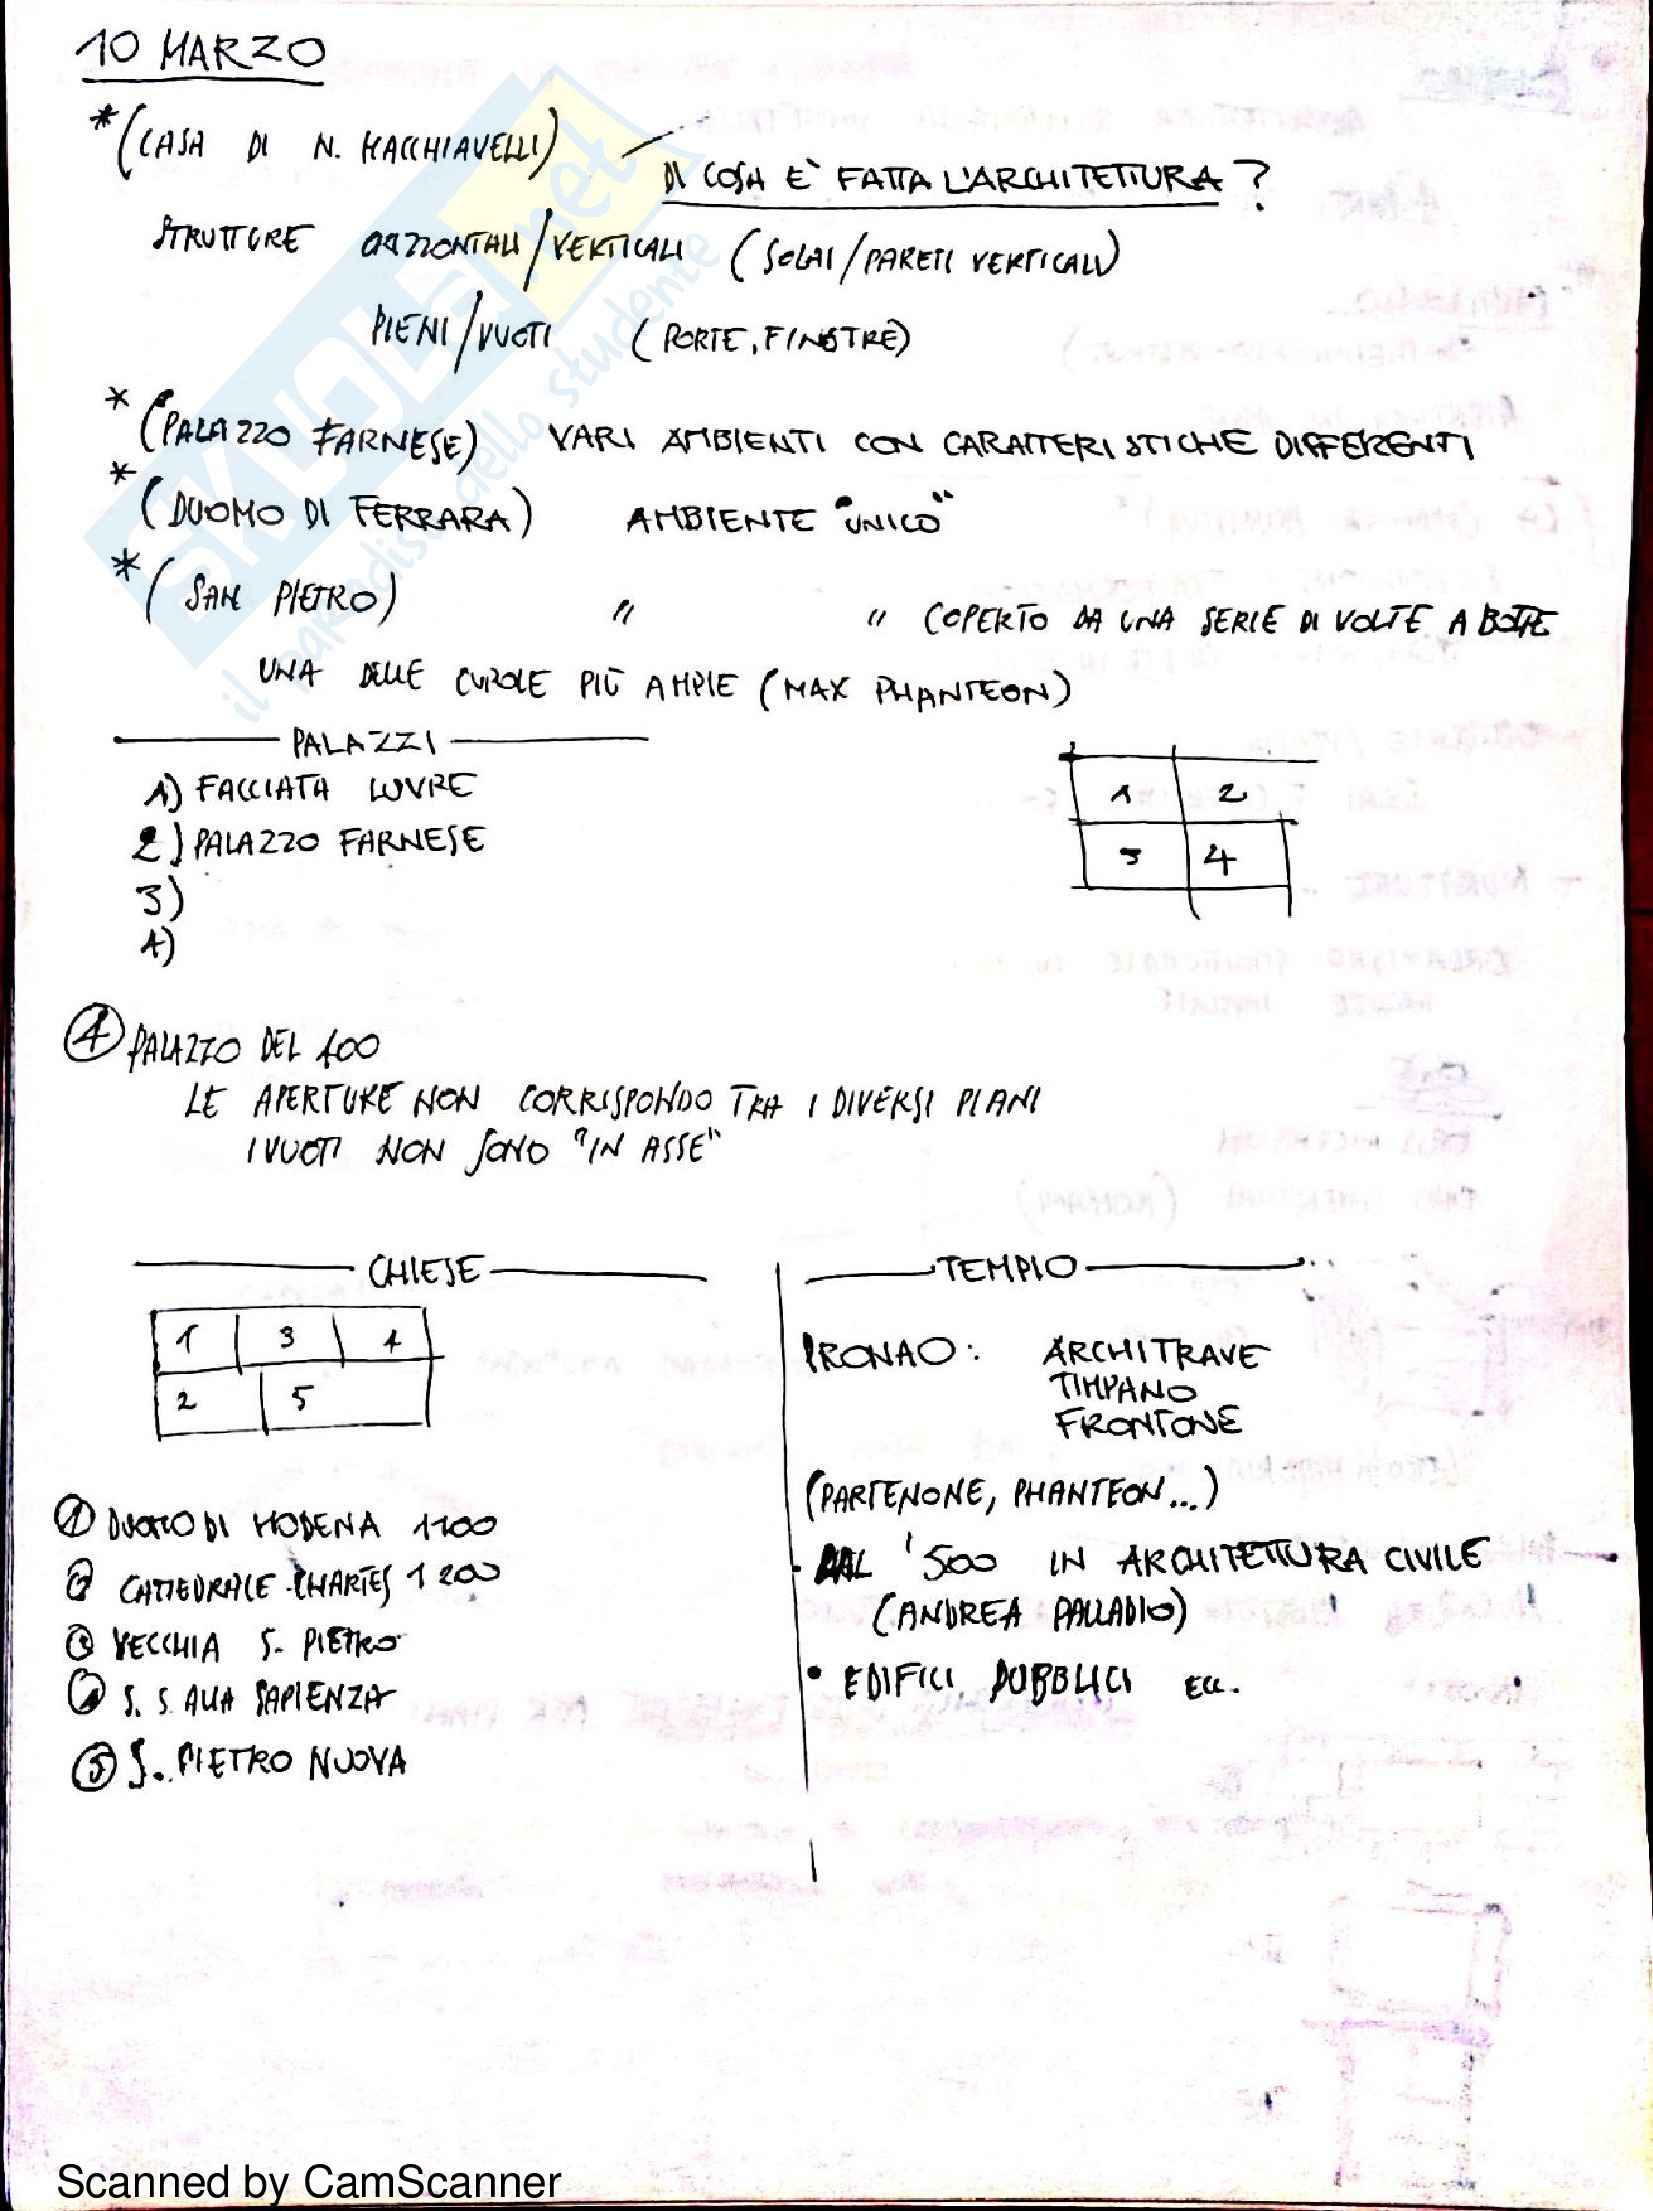 10 MARZO
*(CASA DI N. MACCHIAVELLI)
DI COSA È FATTA L'ARCHITETTURA?
STRUTTURE ORIZZONTALI/VERTICALI (SOLAI/PARETI VERTICALI)
PIENI/VUOTI (PORTE, FINESTRE)
*(PALAZZO FARNESE) VARI AMBIENTI CON CARATTERISTICHE DIFFERENTI
*(DUOMO DI FERRARA) AMBIENTE "UNICO"
*(SAN PIETRO) " " COPERTO DA UNA SERIE DI VOLTE A BOTTE
UNA DELLE CUPOLE PIÙ AMPIE (MAX PHANTEON)
PALAZZI
1) FACCIATA LUVRE
2) PALAZZO FARNESE
3)
4)
1 2
3 4
4 PALAZZO DEL 400
LE APERTURE NON CORRISPONDO TRA I DIVERSI PIANI
I VUOTI NON SONO "IN ASSE"
CHIESE
1 3 4
2 5
1 DUOMO DI MODENA 1100
2 CATTEDRALE CHARTES 1200
3 VECCHIA S. PIETRO
4 S. S. ALLA SAPIENZA
5 S. PIETRO NUOVA
TEMPIO
PRONAO: ARCHITRAVE
TIMPANO
FRONTONE
(PARTENONE, PHANTEON...)
- DAL '500 IN ARCHITETTURA CIVILE
(ANDREA PALLADIO)
• EDIFICI PUBBLICI ECC.
SKUOLA.net
il paradiso dello studente
Scanned by CamScanner